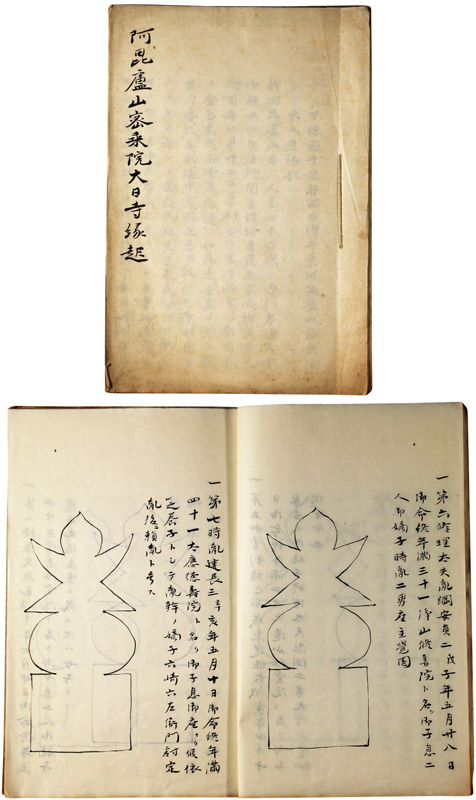 阿毘廬山密乗院大日寺縁起
一第六修理太夫胤綱安貞二戊子年五月廿八日
御命終年満三十一浄山修善院ト名。御子息二
人御嫡子時胤二男座主覚圓
一第七時胤建長三辛亥年五月十日御命終年満
四十一大應徳壽院ト名。御子息御座。候依
之辰子トシテ胤幹ノ嫡子六崎六左衛門討定
胤後頼胤ト号ス